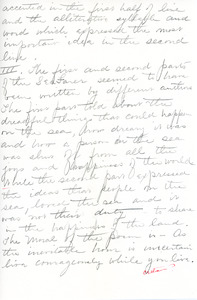 accented in the first half of line
and the alliterative syllable and
word which expressed the most
important idea in the second
line.
III. The first and second parts
of the Seafarer seemed to have
been written by different authors
The first part told about the
dreadful things that could happen
on the sea, how dreary it was
and how a person on the sea
was shut from all the
joys and happiness of the world
While the second part expressed
the ideas that people on the
sea, loved the sea and it
was not their duty to share
in the happiness of this land.
The Moral of the poem is - As
the inevitable hour is uncertain
live courageously while you live.